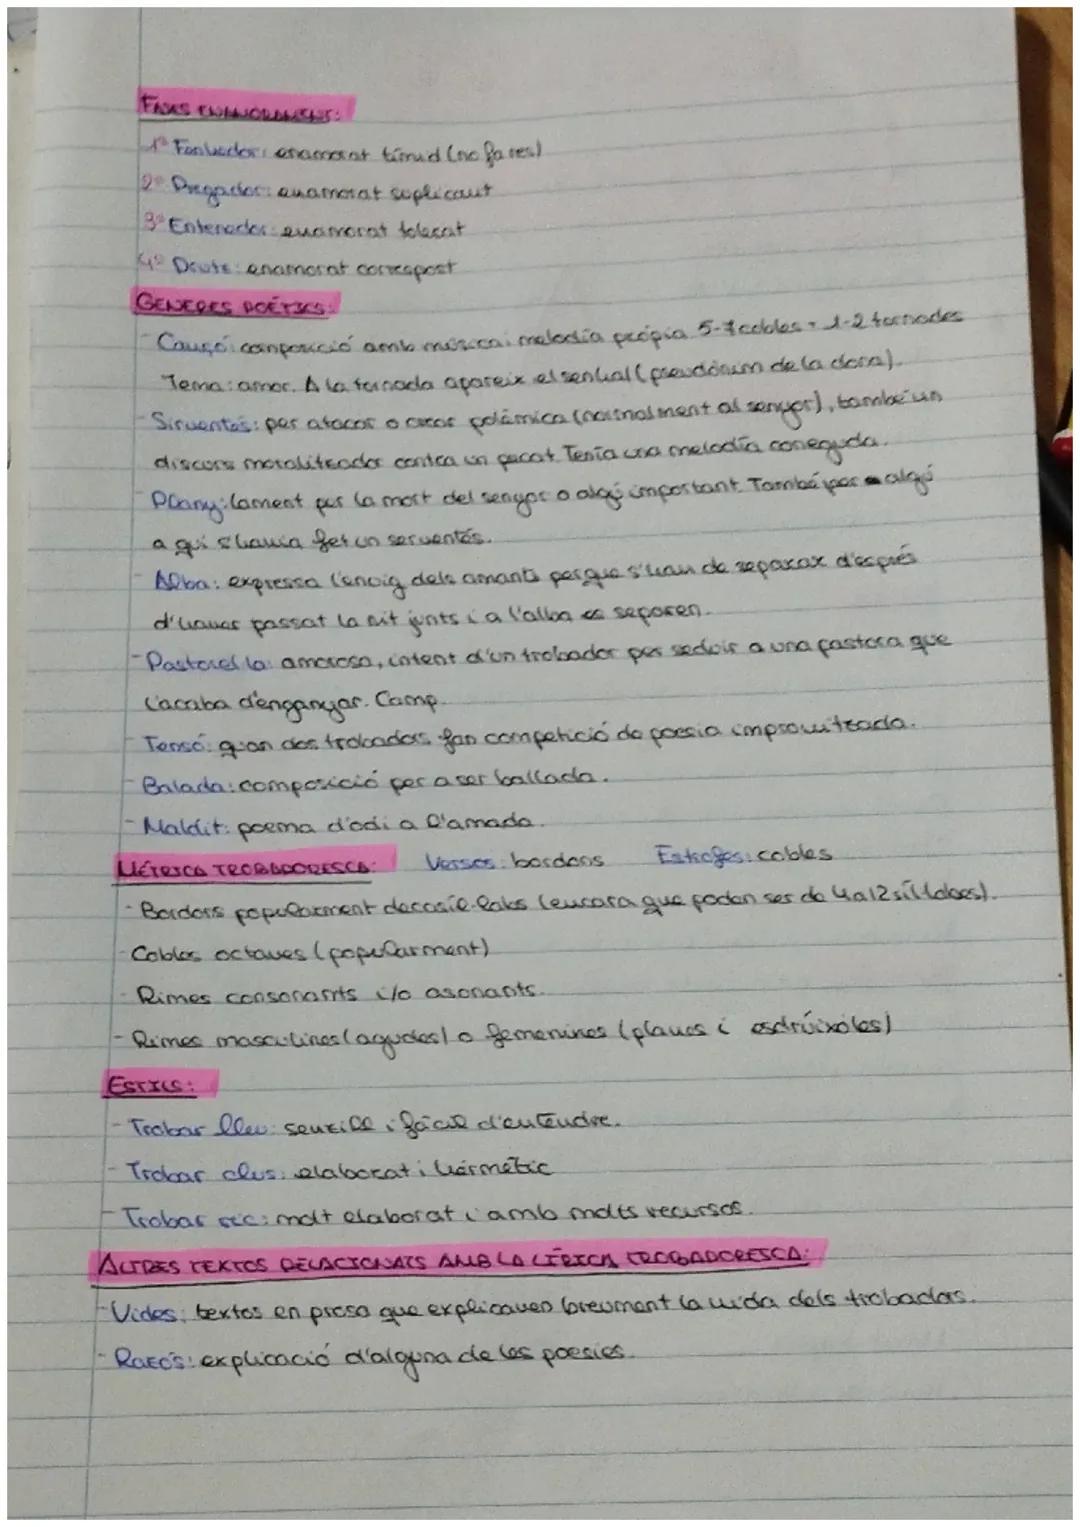 FASES ENAMORAMENT:
1º Fenhedor: enamorat tímid (no fa res)
2º Pregador: enamorat suplicant
3º Entenedor: enamorat tolerat
4º Drutz: enamorat correspost
GENERES POÈTICS:
- Cançó: composició amb música i melodía própia. 5-7 cobles + 1-2 tornades
Tema: amor. A la tornada apareix el senhal (pseudònim de la dona).
- Sirventés: per atacar o crear polémica (normalment al senyor), també un
discurs moralitzador contra un pecat. Tenía una melodía coneguda.
- Plany: lament per la mort del senyor o algú important. També per a algú
a qui s'havia fet un serventés.
- Alba: expressa l'enuig dels amants perque s'han de separar d'esprés
d'haver passat la nit junts i a l'alba es separen.
- Pastorel·la: amorosa, intent d'un trobador per seduir a una pastora que
l'acaba d'enganyar. Camp.
- Tensó: quan dos trobadors fan competició de poesia improvitzada.
- Balada: composició per a ser ballada.
- Maldit: poema d'odi a l'amada.
MÉTRICA TROBADORESCA: Versos: bordons Estrofes: cobles
- Bordons popularment decasíl·labs (encara que poden ser de 4 a 12 síl·labes).
- Cobles octaves (popularment)
- Rimes consonants i/o asonants.
- Rimes masculines (agudes) o femenines (planes i esdrúixoles)
ESTILS:
- Trobar lleu: senzill i fácil d'entendre.
- Trobar clus: elaborat i hérmetic
- Trobar ric: molt elaborat i amb molts recursos.
ALTRES TEXTOS RELACIONATS AMB LA LÍRICA TROBADORESCA:
- Vides: textos en prosa que explicaven breument la vida dels trobadors.
- Razó's: explicació d'alguna de les poesies.